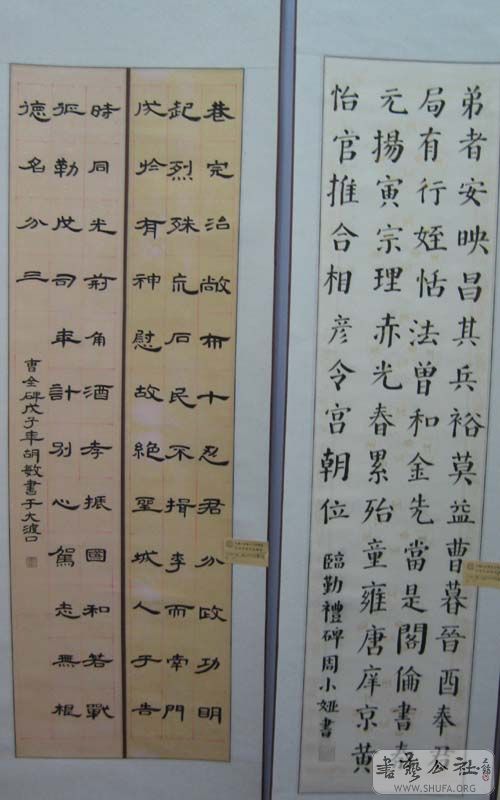 弟者安映昌其兵裕莫益曹暮晉酉奉
局有行姪恬法曾和金先當是閣倫書
元揚寅宗理赤光春累殆童雍唐庠京黄
怡官推合相彥令宮朝位
臨勤禮碑周小婭書
巷完治敞布十忍君分政功明
起烈殊荒石民不揖李而幸門
戍於有神慰故絕聖城人于告
時同光荊角酒孝振國和若戰
孤勒戊司車計別心駕志無根
德名分三
曹全碑戊子年胡敏書于大渡口
書藝公社
WWW.SHUFA.ORG